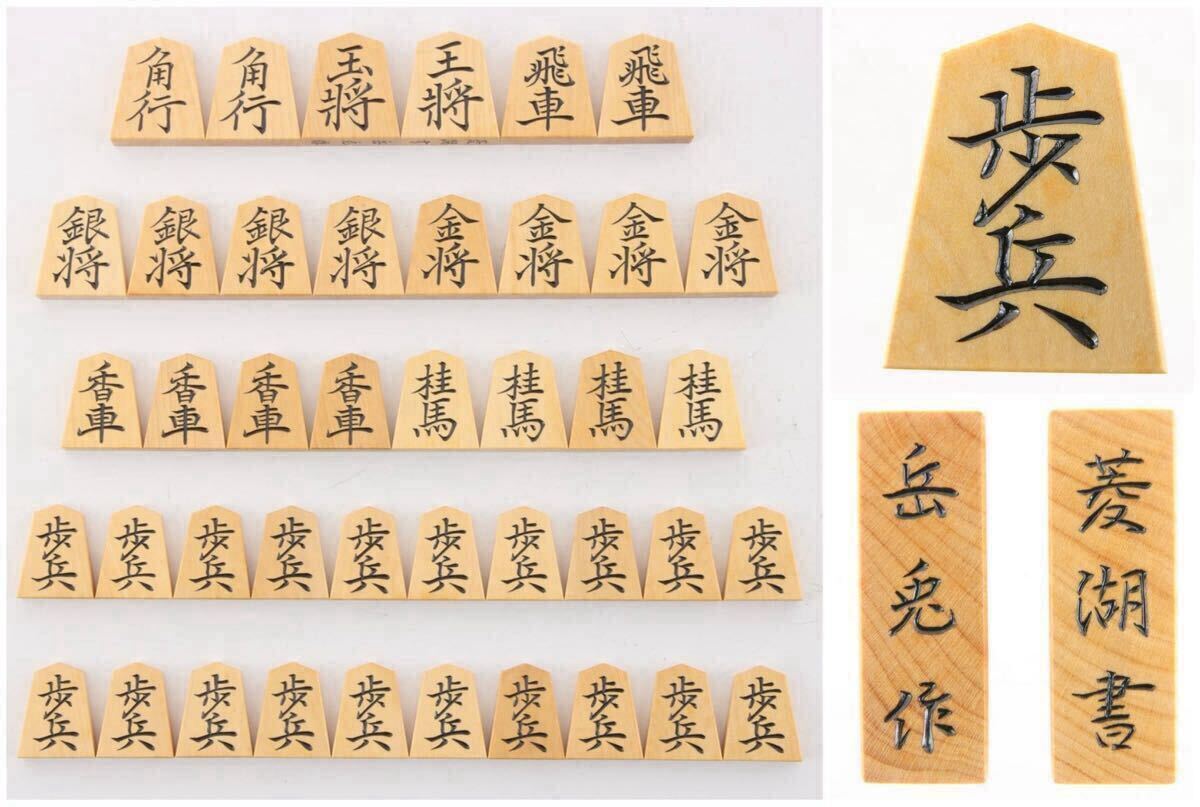 角行 角行 玉將 王將 飛車 飛車
銀将 銀将 銀将 銀将 金将 金将 金将 金将
香車 香車 香車 香車 桂馬 桂馬 桂馬 桂馬
歩兵 歩兵 歩兵 歩兵 歩兵 歩兵 歩兵 歩兵 歩兵 歩兵
歩兵 歩兵 歩兵 歩兵 歩兵 歩兵 歩兵 歩兵 歩兵 歩兵
歩兵
岳兎作
菱湖書